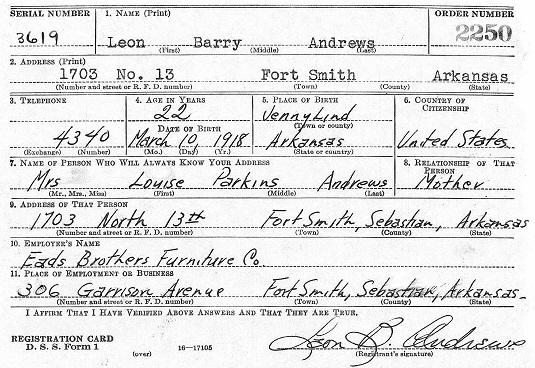 SERIAL NUMBER 1. NAME (Print) ORDER NUMBER
3619 Leon Barry Andrews 2250
(First) (Middle) (Last)
2. ADDRESS (Print)
1703 No. 13 Fort Smith Arkansas
(Number and street or R. F. D. number) (Town) (County) (State)
3. TELEPHONE 4. AGE IN YEARS 5. PLACE OF BIRTH 6. COUNTRY OF CITIZENSHIP
22 Jenny Lind
(Town or county)
DATE OF BIRTH
4340 March 10, 1918 Arkansas United States
(Exchange) (Number) (Mo.) (Day) (Yr.) (State or country)
7. NAME OF PERSON WHO WILL ALWAYS KNOW YOUR ADDRESS 8. RELATIONSHIP OF THAT PERSON
Mrs Louise Parkins Andrews Mother
(Mr., Mrs., Miss) (First) (Middle) (Last)
9. ADDRESS OF THAT PERSON
1703 North 13th Fort Smith, Sebastian, Arkansas
(Number and street or R. F. D. number) (Town) (County) (State)
10. EMPLOYER'S NAME
Eads Brothers Furniture Co.
11. PLACE OF EMPLOYMENT OR BUSINESS
306 Garrison Avenue Fort Smith, Sebastian, Arkansas
(Number and street or R. F. D. number) (Town) (County) (State)
I AFFIRM THAT I HAVE VERIFIED ABOVE ANSWERS AND THAT THEY ARE TRUE.
REGISTRATION CARD
D. S. S. Form 1 (over) 16—17105 Leon B. Andrews
(Registrant's signature)